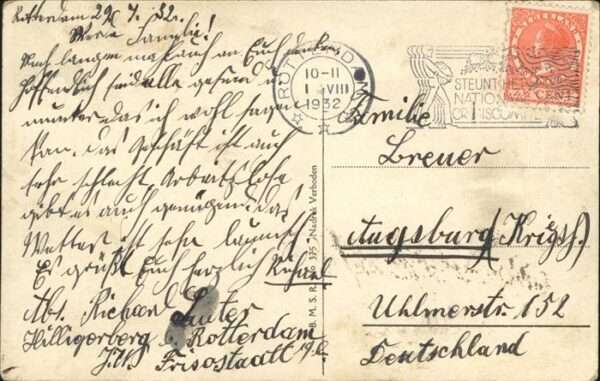 Rotterdam 29/7.32.
Werte Familie!
Nach langem mal auch an Euch denken
Hoffendlich seid alle gesund u.
munter das ich wohl sagen
kan. Das Geschäft ist auch
sehr schlecht, Arbeitslose
gibt es auch genügend das
Wetter ist sehr launisch
Es grüßt Euch herzlich Richard
Abs. Richard Lauter
Hilligerberg b. Rotterdam
Frisostaat
ROTTERDAM
10-11
1 VIII
1932
STEUNT HET
NATIONAAL
CRISISCOMITE
NEDERLAND
7½ CENT
B. M. S. R. No 335 Nadruk Verboden
Familie
Breuer
Augsburg (Krigsh.)
Uhlmerstr. 152
Deutschland